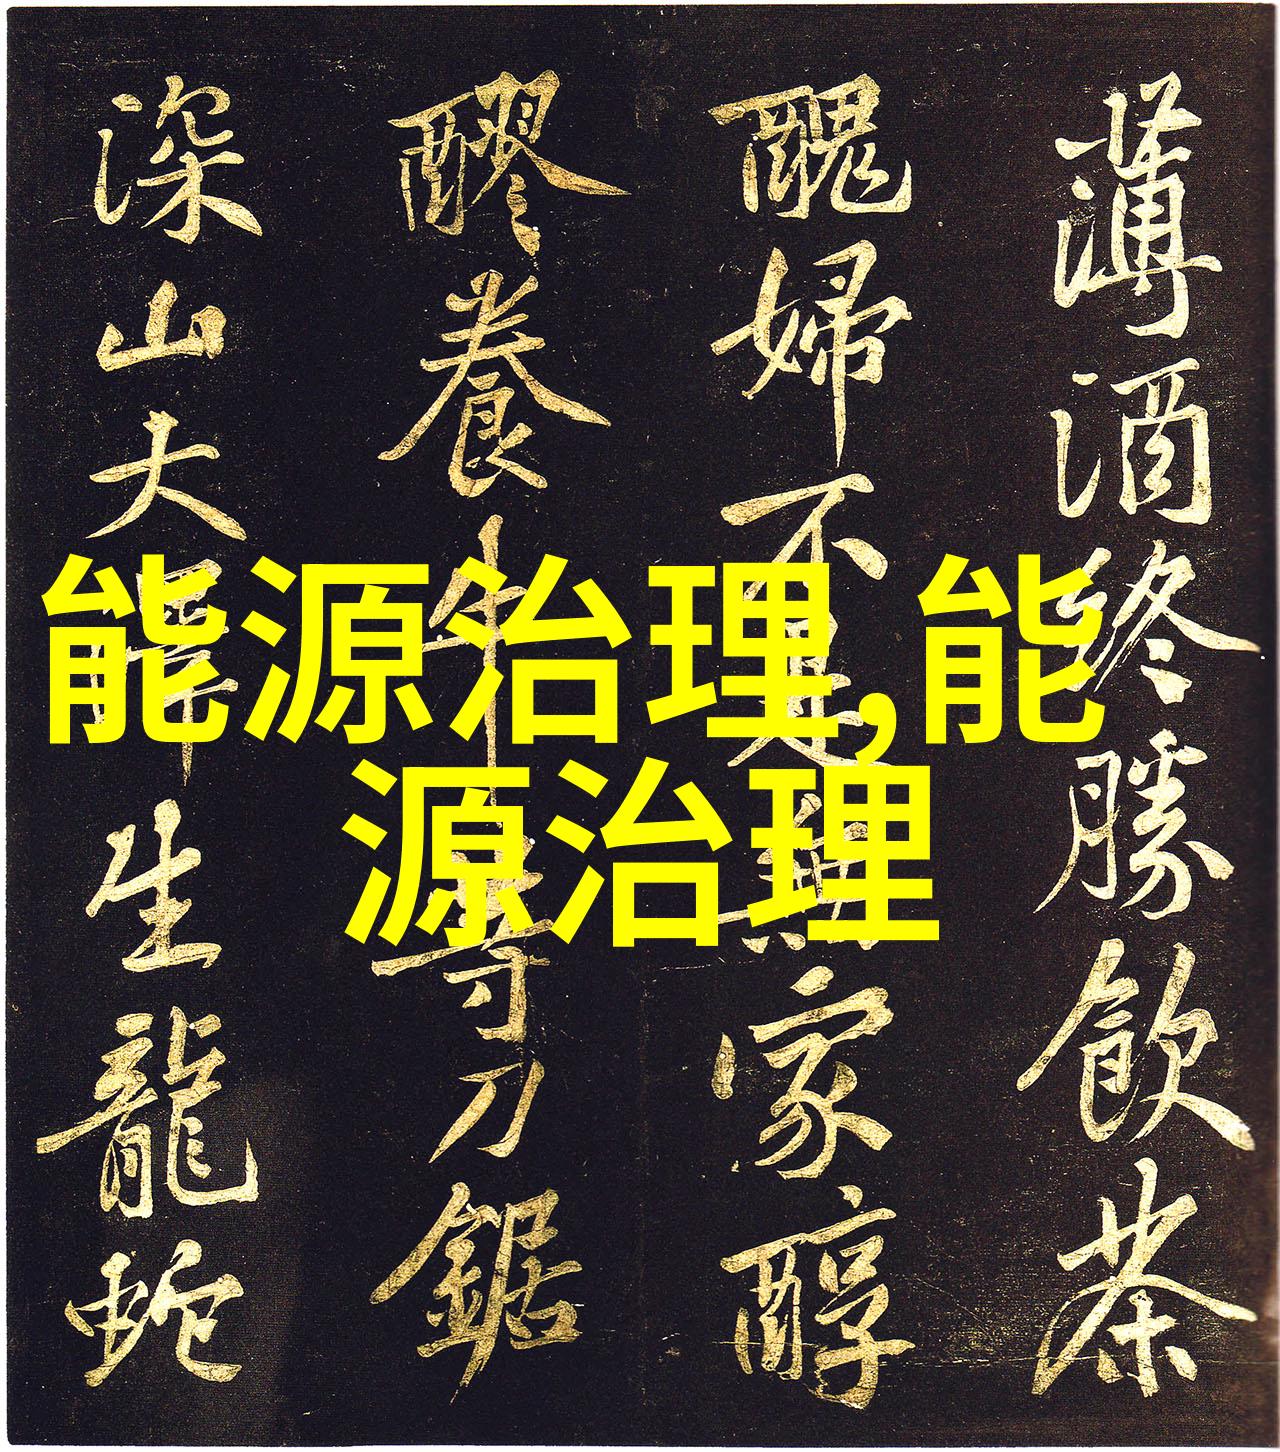 能源治理,能
源治理
薄酒終勝飲茶
醜婦不是無家醇
醪養牛等刀鋸
深山大澤生龍蛇